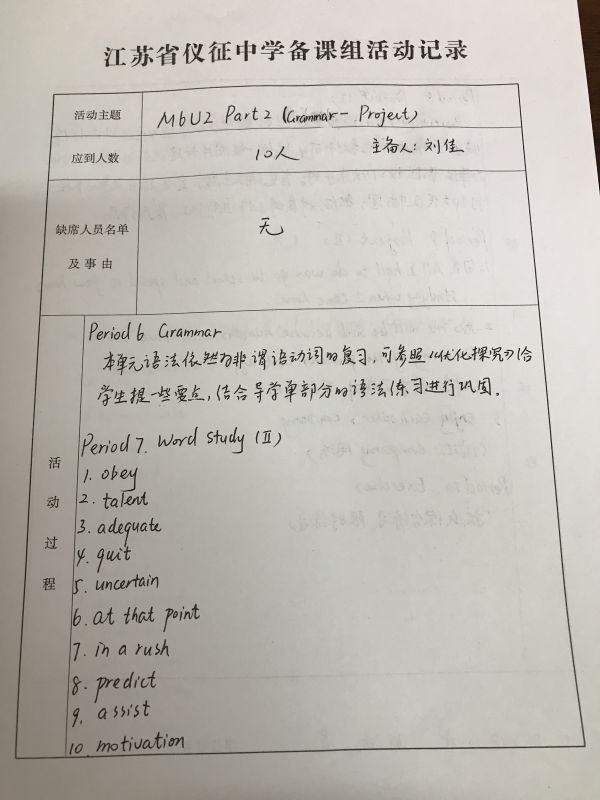 江苏省仪征中学备课组活动记录
活动主题 M6U2 Part 2 (Grammar - Project)
应到人数 10人 主备人: 刘佳
缺席人员名单 无
及事由
活动过程
Period 6 Grammar
本单元语法依然为非谓语动词的复习，可参照《优化探究》给
学生提一些要点，结合导学单部分的语法练习进行巩固。
Period 7. Word study (II)
1. obey
2. talent
3. adequate
4. quit
5. uncertain
6. at that point
7. in a rush
8. predict
9. assist
10. motivation